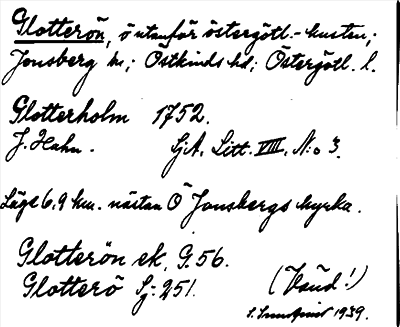 Glotterön, ö utanför östergötl.-kusten;
Jonsberg sn; Östkinds hd; Östergötl. l.
Glotterholm 1752.
J. Hahn. SjA. Litt. VIII. N:o 3.
Läge 6,9 km. nästan Ö Jonsbergs kyrka.
Glotterön ek. G. 56.
Glotterö Sj: 251. (Vänd!)
1939.